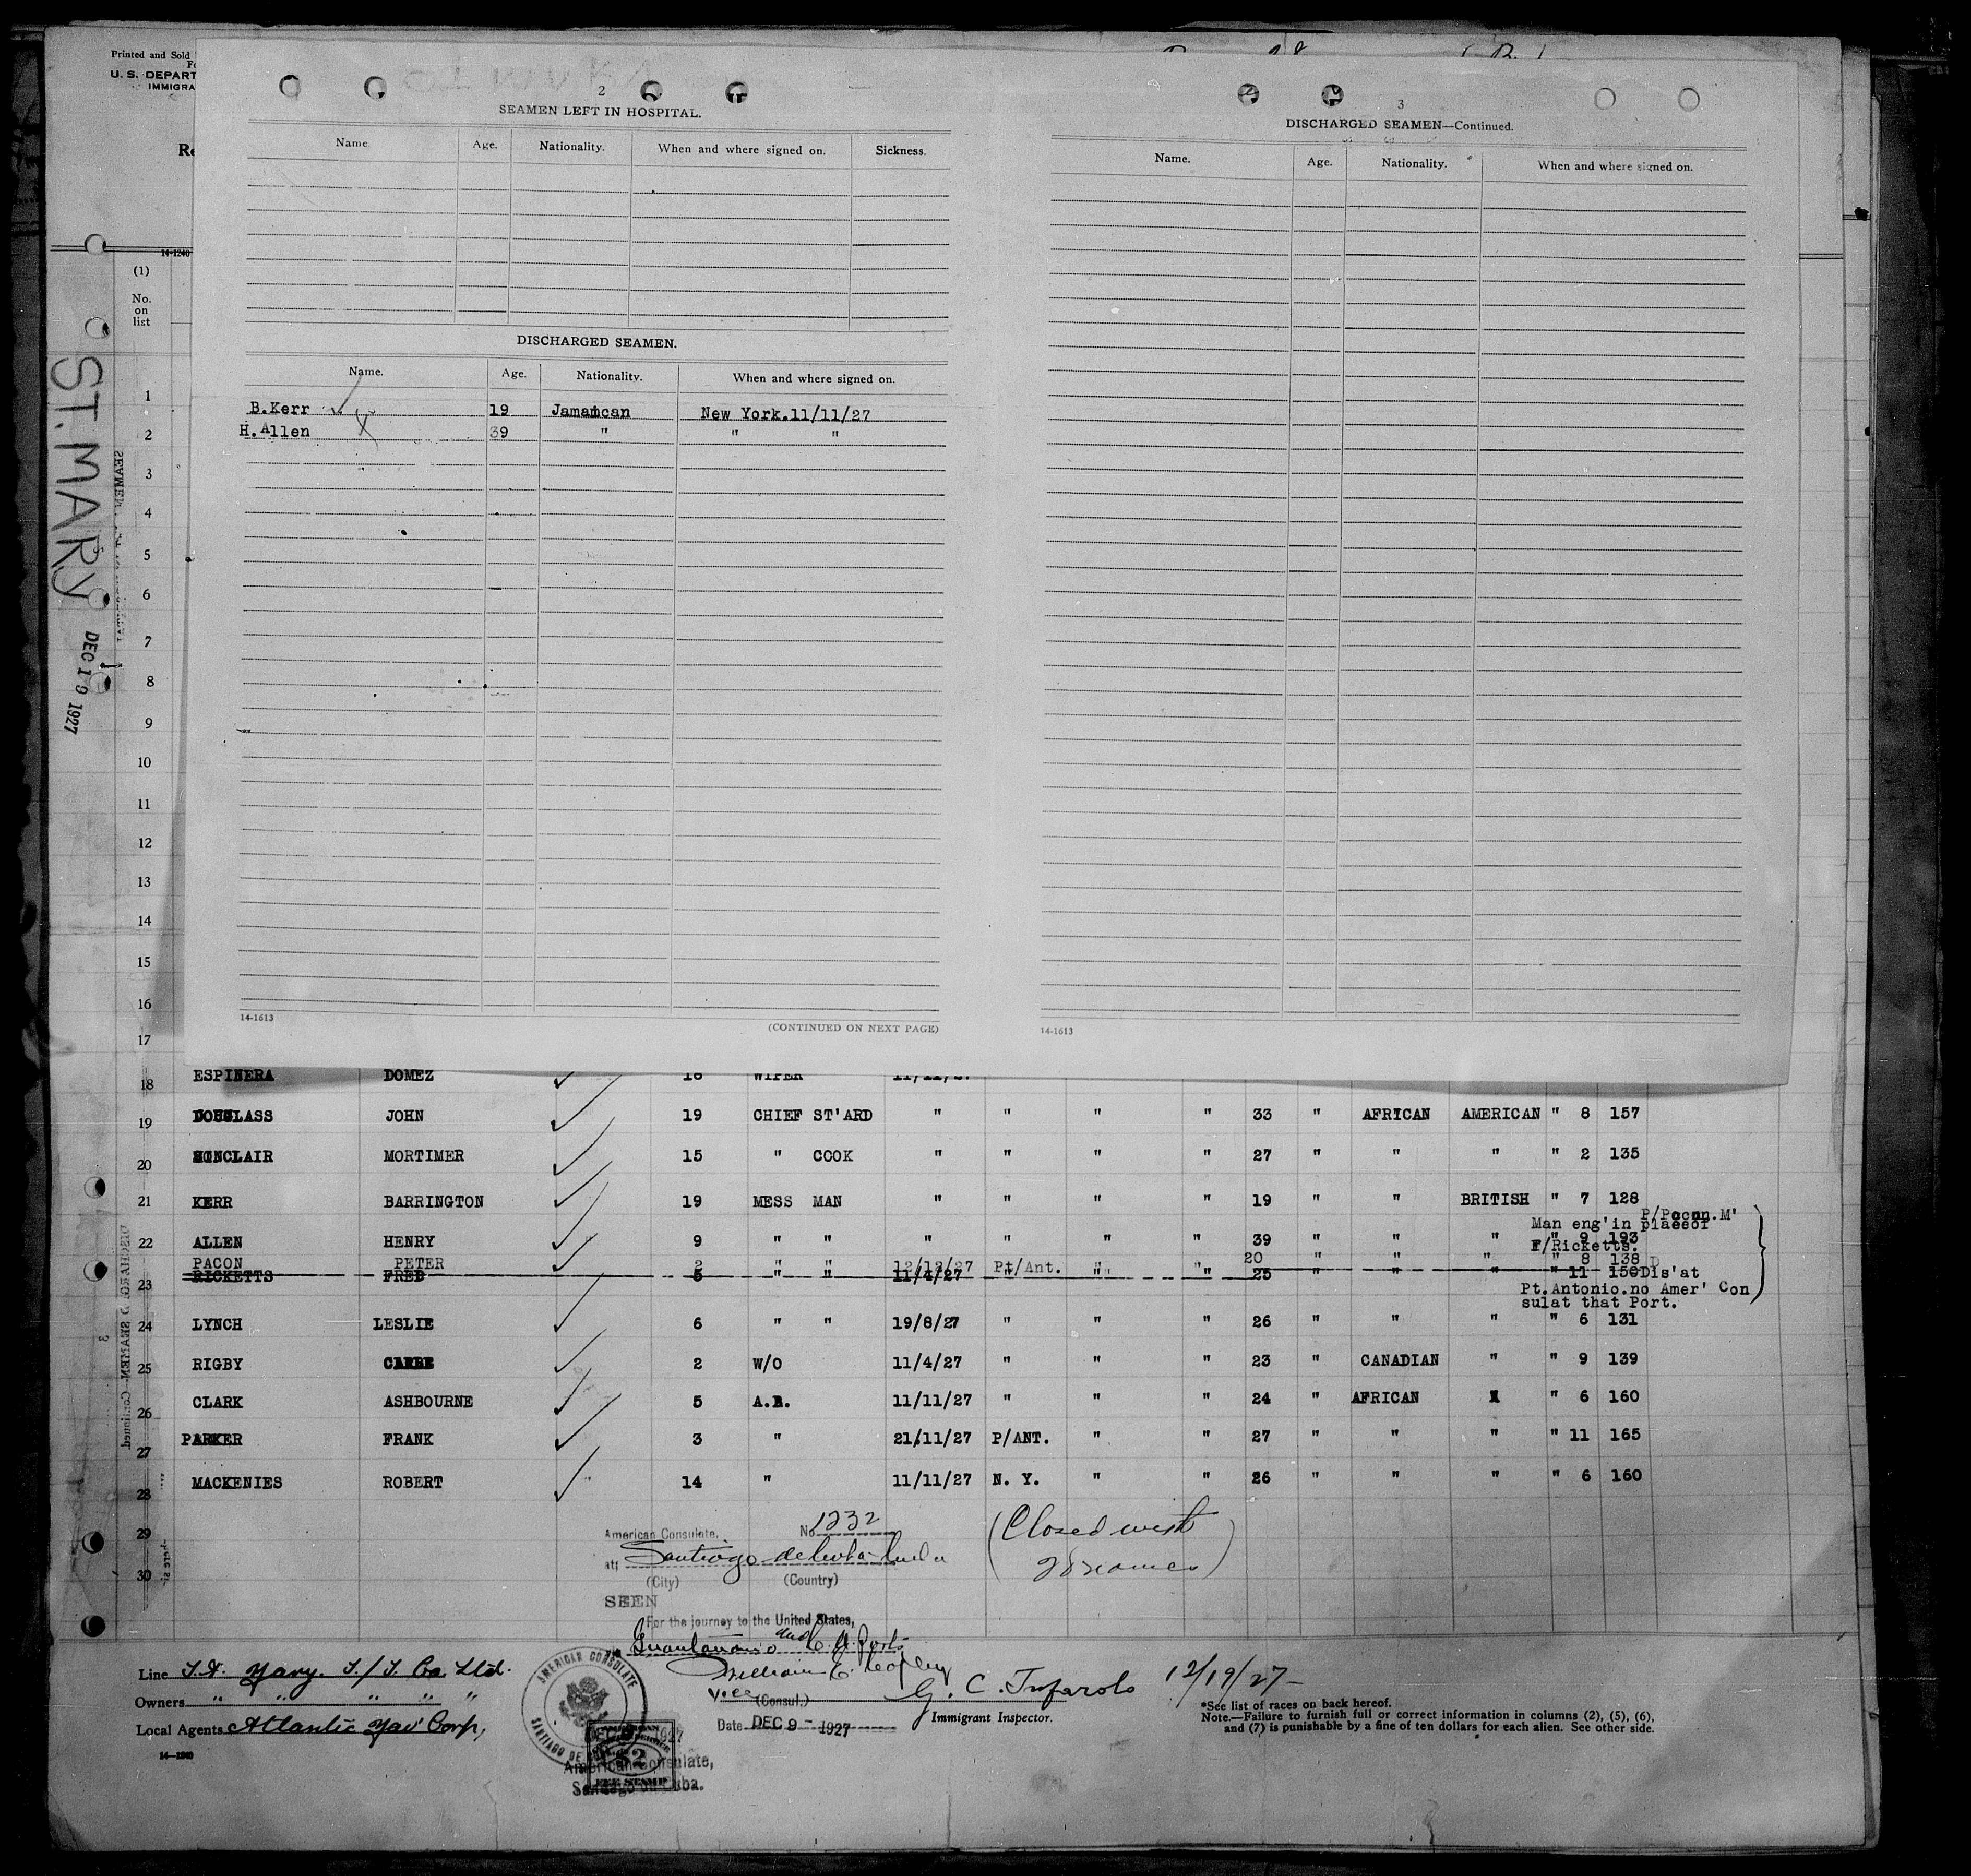 Printed and Sold
U. S. DEPART
IMMIGRA
Re
14-1240
(1)
No.
on
list
ST. MARY
DEC 19 1927
2
SEAMEN LEFT IN HOSPITAL.
Name. Age. Nationality. When and where signed on. Sickness.
DISCHARGED SEAMEN.
Name. Age. Nationality. When and where signed on.
B.Kerr 19 Jamaican New York.11/11/27
H.Allen 39 " " "
14-1613
(CONTINUED ON NEXT PAGE)
3
DISCHARGED SEAMEN—Continued.
Name. Age. Nationality. When and where signed on.
14-1613
1
2
3
4
5
6
7
8
9
10
11
12
13
14
15
16
17
18 ESPINERA DOMEZ 18 WIPER 11/11/27
19 DOUGLASS JOHN 19 CHIEF ST'ARD " " " " 33 " AFRICAN AMERICAN " 8 157
20 SINCLAIR MORTIMER 15 " COOK " " " " 27 " " " " 2 135
21 KERR BARRINGTON 19 MESS MAN " " " " 19 " " BRITISH " 7 128
P/Pacon.M'
Man eng'in place of
22 ALLEN HENRY 9 " " " " " " 39 " " " " 9 193
F/Ricketts.
PACON PETER 2 " " 12/12/27 Pt/Ant. " " 20 " " " " 8 138
23 RICKETTS FRED 5 " " 11/4/27 " " " 25 " " " " 11 150 Dis'at
Pt.Antonio.no Amer' Con
sulat that Port.
24 LYNCH LESLIE 6 " " 19/8/27 " " " 26 " " " " 6 131
25 RIGBY 2 W/O 11/4/27 " " " 23 " CANADIAN " " 9 139
26 CLARK ASHBOURNE 5 A.B. 11/11/27 " " " 24 " AFRICAN " 6 160
27 PARKER FRANK 3 " 21/11/27 P/ANT. " " 27 " " " " 11 165
28 MACKENIES ROBERT 14 " 11/11/27 N. Y. " " 26 " " " " 6 160
29
30
American Consulate. No 1232
at Santiago de Cuba Cuba
(City) (Country)
(Closed with
28 names)
SEEN
For the journey to the United States,
via Guantanamo and U.S. Ports
William E.
Vice (Consul.)
Date DEC 9 - 1927
AMERICAN CONSULATE
SANTIAGO DE CUBA
American Consulate,
Santiago de Cuba.
$2
FEE STAMP
G. C. 12/19/27
Immigrant Inspector.
Line Nav. S/S. Co. Ltd.
Owners " " " " "
Local Agents Atlantic Nav Corp,
14—1240
*See list of races on back hereof.
Note.—Failure to furnish full or correct information in columns (2), (5), (6),
and (7) is punishable by a fine of ten dollars for each alien. See other side.